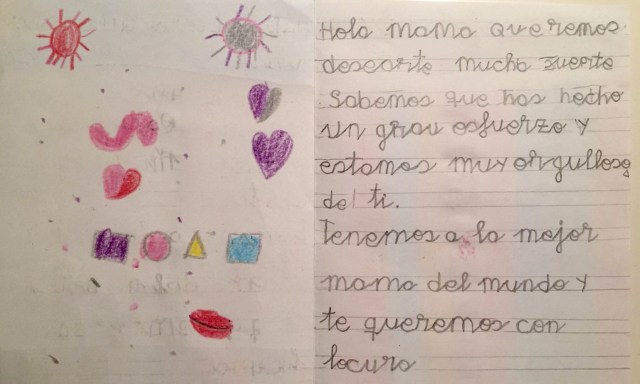 Hola mama queremos
desearte mucha suerte
Sabemos que has hecho
un gran esfuerzo y
estamos muy orgullosos
de ti.
Tenemos a la mejor
mama del mundo y
te queremos con
locura